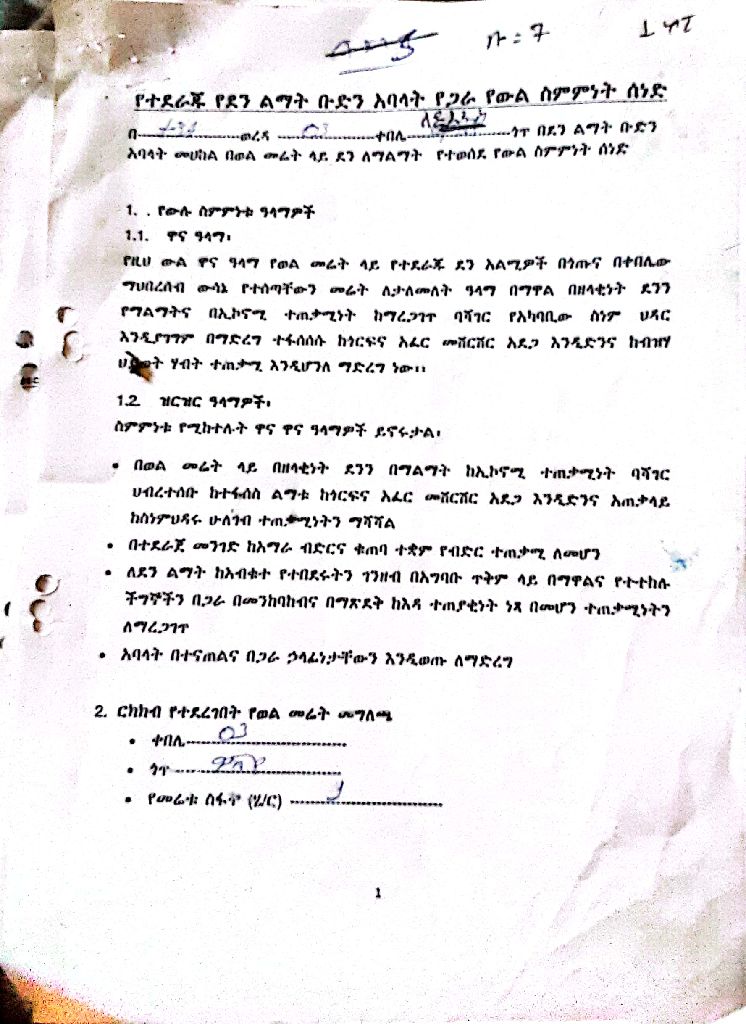 ቡ = 7
የተደራጁ የደን ልማት ቡድን አባላት የጋራ የውል ስምምነት ሰነድ
በ....................ወረዳ ....03............ቀበሌ....................ጎጥ በደን ልማት ቡድን
አባላት መሀከል በወል መሬት ላይ ደን ለማልማት የተወሰደ የውል ስምምነት ሰነድ
1. . የውሉ ስምምነቱ ዓላማዎች
1.1. ዋና ዓላማ፡
የዚህ ውል ዋና ዓላማ የወል መሬት ላይ የተደራጁ ደን አልሚዎች በጎጡና በቀበሌው
ማህበረሰብ ውሳኔ የተሰጣቸውን መሬት ለታለመለት ዓላማ በማዋል በዘላቂነት ደንን
የማልማትና በኢኮኖሚ ተጠቃሚነት ከማረጋገጥ ባሻገር የአካባቢው ስነም ህዳር
እንዲያገግም በማድረግ ተፋሰሱ ከጎርፍና አፈር መሸርሸር አደጋ እንዲድንና ከብዝሃ
ህይወት ሃብት ተጠቃሚ እንዲሆንለ ማድረግ ነው፡፡
1.2. ዝርዝር ዓላማዎች፡
ስምምነቱ የሚከተሉት ዋና ዋና ዓላማዎች ይኖሩታል፡
• በወል መሬት ላይ በዘላቂነት ደንን በማልማት ከኢኮኖሚ ተጠቃሚነት ባሻገር
ህብረተሰቡ ከተፋሰስ ልማቱ ከጎርፍና አፈር መሸርሸር አደጋ እንዲድንና አጠቃላይ
ከስነምህዳሩ ሁለገብ ተጠቃሚነትን ማሻሻል
• በተደራጀ መንገድ ከአማራ ብድርና ቁጠባ ተቋም የብድር ተጠቃሚ ለመሆን
• ለደን ልማት ከአብቁተ የተበደሩትን ገንዘብ በአግባቡ ጥቅም ላይ በማዋልና የተተከሉ
ችግኞችን በጋራ በመንከባከብና በማጽደቅ ከእዳ ተጠያቂነት ነጻ በመሆን ተጠቃሚነትን
ለማረጋገጥ
• አባላት በተናጠልና በጋራ ኃላፊነታቸውን እንዲወጡ ለማድረግ
2. ርክክብ የተደረገበት የወል መሬት መግለጫ
• ቀበሌ........03....................
• ጎጥ ....................
• የመሬቱ ስፋት (ሄ/ር) ....................
1